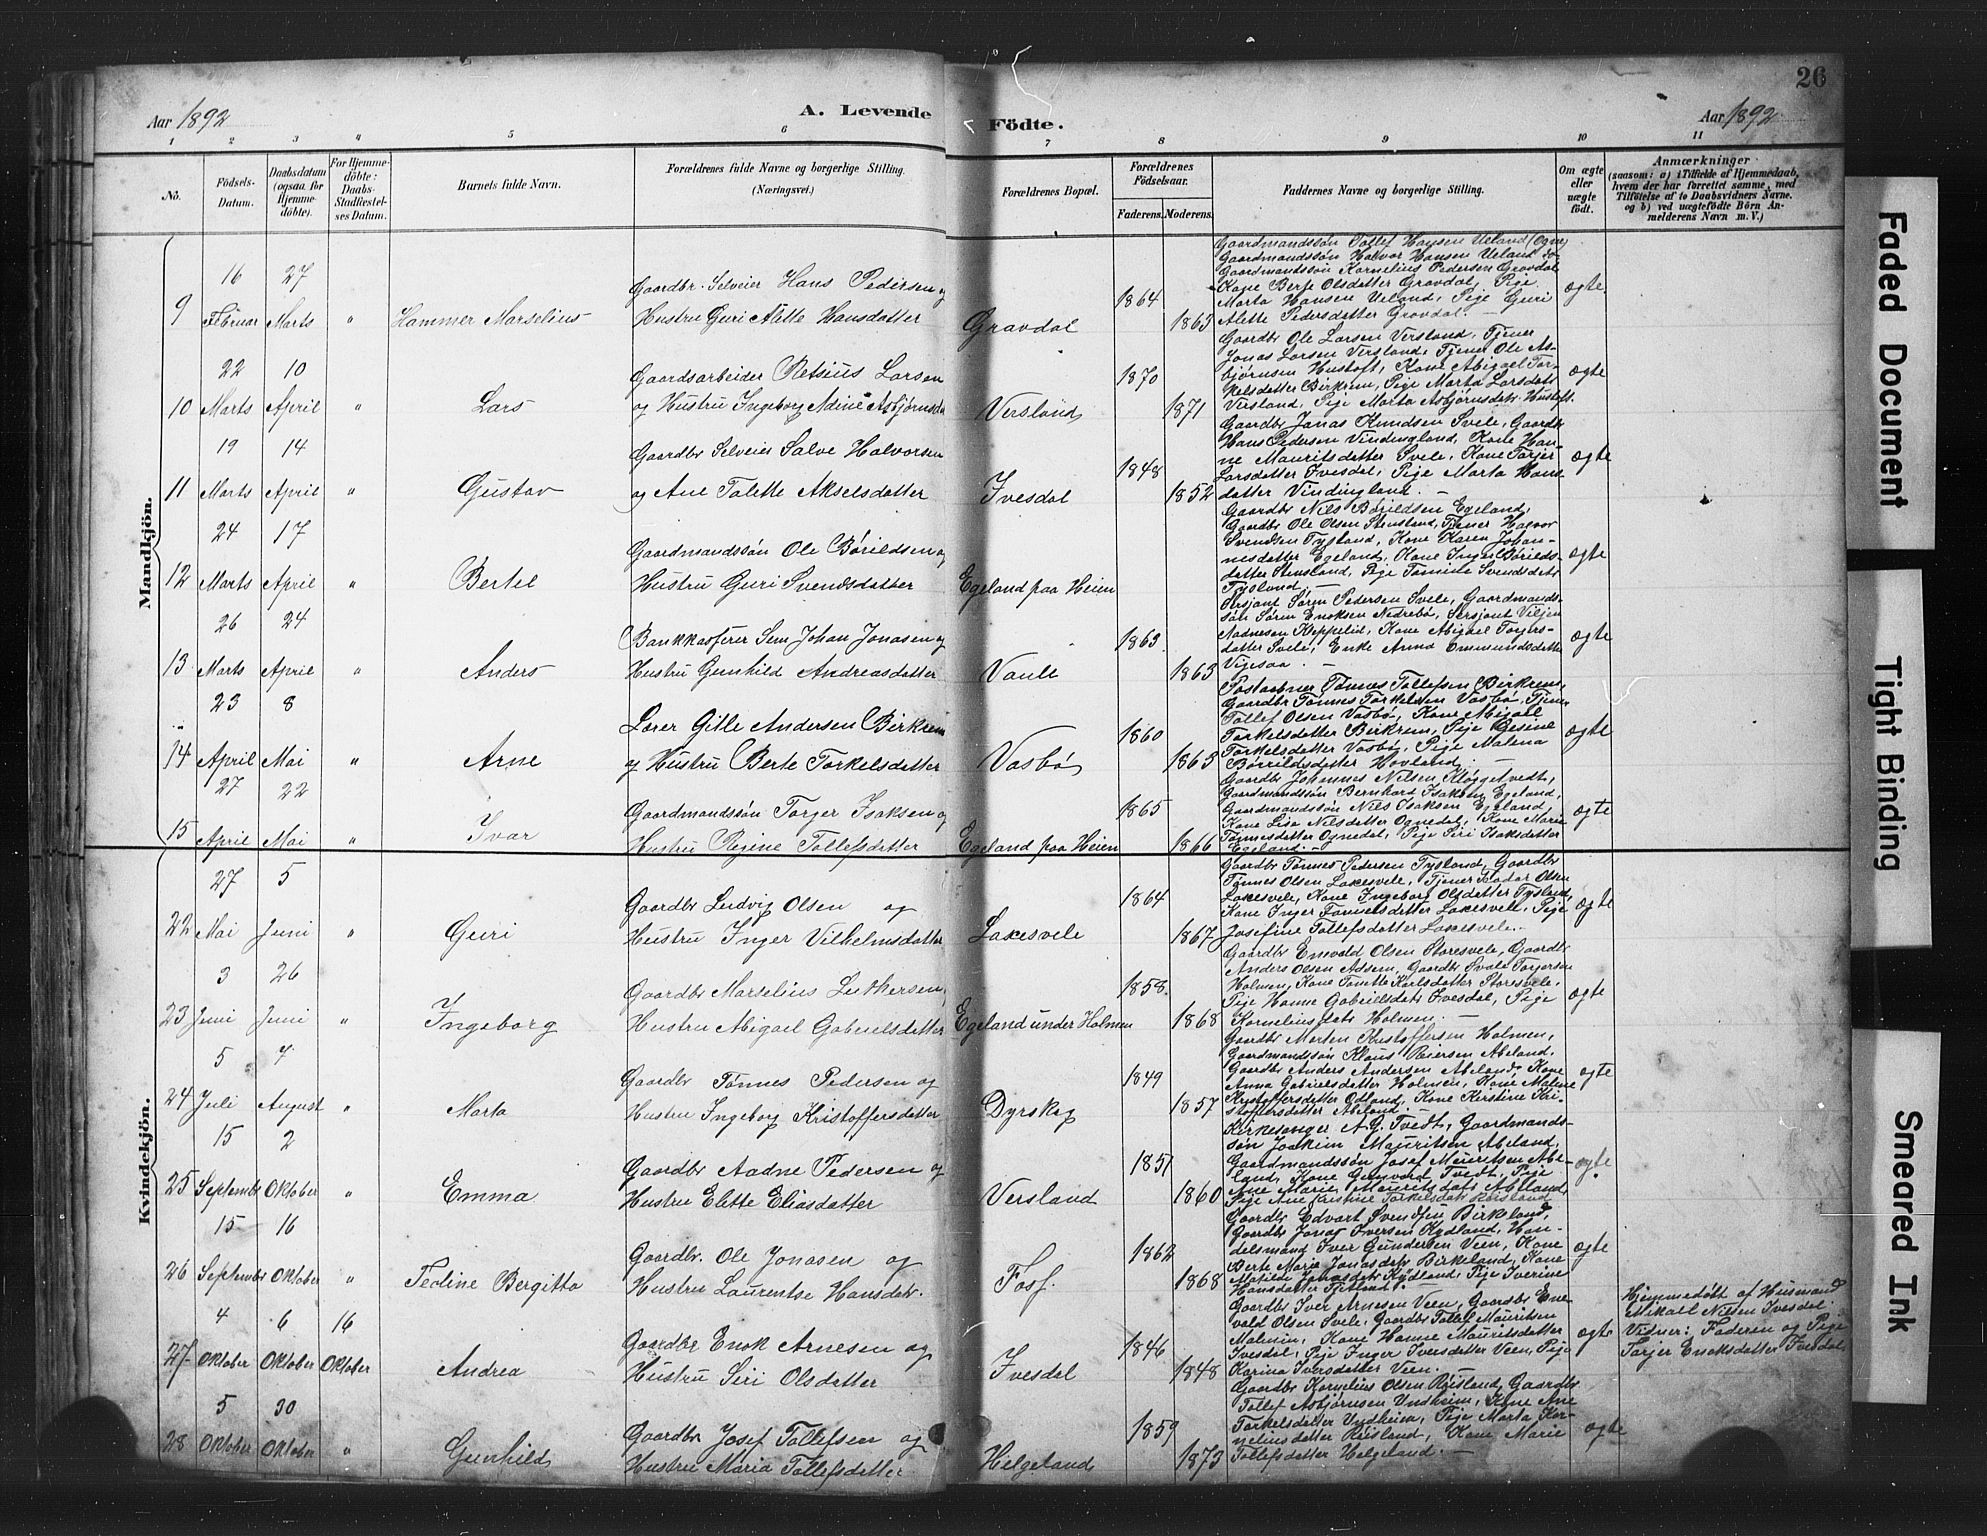 26
Aar 1892
A. Levende Födte.
Aar 1892
1 2 3 " 5 6 7 8 9 10 11
No.
Födsels-Datum.
Daabsdatum (ogsaa for Hjemme-döbte).
For Hjemme-döbte: Daabs-Stadfæstel-ses Datum.
Barnets fulde Navn.
Forældrenes fulde Navne og borgerlige Stilling.
(Næringsvei.)
Forældrenes Bopæl.
Forældrenes Födselsaar.
Faderens. Moderens.
Faddernes Navne og borgerlige Stilling.
Om ægte eller uægte födt.
Anmærkninger
(saasom: a) i Tilfælde af Hjemmedaab,
hvem der har forrettet samme, med
Tilföielse af to Daabsvidners Navne.
og b) ved uægtefödte Börn An-
melderens Navn m. V.)
Mandkjön.
9 16 Februar 27 Marts " Hammer Marselius
Gaardbr. Selveier Hans Pedersen og
Hustru Guri Alette Hansdatter
Gravdal 1864 1863
Gaardmandssön Tollef Hansen Ueland (Ogne)
Gaardmandssön Halvor Hansen Ueland do
Gaardmandssön Kornelius Pedersen Gravdal
Kone Berte Olsdatter Gravdal, Pige
Marta Hansen Ueland, Pige Guri
Alette Pedersdatter Gravdal. –
ægte.
10 22 Marts 10 April " Lars
Gaardsarbeider Retsius Larsen
og Hustru Ingeborg Adine Asbjørnsd.
Versland 1870 1871
Gaardbr Ole Larsen Versland, Tjener
Jonas Larsen Versland, Tjener Ole As-
bjørnsen Hustoft, Kone Abigael Tor-
kelsdatter Birkrem, Pige Marta Larsdatr
Versland, Pige Marta Asbjørnsdatr Hustoft.
ægte
11 19 Marts 14 April " Gustav
Gaardbr Selveier Salve Halvorsen
og Ane Tolette Akselsdatter
Ivesdal 1848 1852
Gaardbr Jonas Knudsen Svele, Gaardbr
Hans Pedersen Vindingland, Kone Han-
ne Mauritsdatter Svele, Kone Torjer
Larsdatter Ivesdal, Pige Marta Hans
datter Vindingland. –
ægte
12 24 Marts 17 April " Bertel
Gaardmandssön Ole Börildsen og
Hustru Guri Svendsdatter
Egeland paa Heien
Gaardbr Nils Börildsen Egeland,
Gaardbr Ole Olsen Stensland, Tjener Halvor
Svendsen Tysland, Kone Karen Johan-
nesdatter Egeland, Kone Inger Börilds-
datter Stensland, Pige Tomine Svendsdatr
Tysland. –
ægte
13 26 Marts 24 April " Anders
Bankkasserer Sem Johan Jonasen og
Hustru Gunhild Andreasdatter
Vaule 1863 1863
Sersjant Sören Pedersen Svele, Gaardmands-
sön Sören Enoksen Nedrebö, Sersjant Viljen
Aadnesen Kleppelid, Kone Abigael Torgers-
datter Svele, Enke Anna Ommundsdatter
Vigesaa. –
ægte
14 23 April 8 Mai " Arne
Lærer Gitle Andersen Birkrem
og Hustru Berte Torkelsdatter
Vasbö 1860 1863
Postaabner Tönnes Tollefsen Birkrem,
Gaardbr Tönnes Torkelsen Vasbö, Tjener
Tollef Olsen Vasbö, Kone Abigael
Torkelsdatter Birkrem, Pige Gesine
Torkelsdatter Vasbö, Pige Malena
Börrildsdatter Hovland. –
ægte
15 27 April 22 Mai " Ivar
Gaardmandssön Torger Isaksen og
Hustru Regine Tollefsdatter
Egeland paa Heien 1865 1866
Gaardbr Johannes Nilsen Kløgetvedt,
Gaardmandssön Bernhard Isaksen Egeland,
Gaardmandssön Nils Isaksen Egeland,
Kone Lisa Nilsdatter Ognedal, Kone Maria
Tönnesdatter Ognedal, Pige Siri Isaksdatter
Egeland. –
ægte
Kvindekjön.
22 27 Mai 5 Juni " Guri
Gaardbr Ludvig Olsen og
Hustru Inger Vilhelmsdatter
Lakesvele 1864 1867
Gaardbr Tönnes Pedersen Tysland, Gaardbr
Tönnes Olsen Lakesvele, Tjener Olsen
Lakesvele, Kone Ingeborg Olsdatter Tysland,
Kone Inger Tönnesdatter Lakesvele, Pige
Josefine Tollefsdatter Lakesvele. –
ægte
23 3 Juni 26 Juni " Ingeborg
Gaardbr Marselius Luthersen,
Hustru Abigael Gabrielsdatter
Egeland under Holmen 1858. 1868
Gaardbr Enevald Olsen Storesvele, Gaardbr
Anders Olsen Adsem, Gaardbr Svale Torjersen
Holmen, Kone Tonette Karlsdatter Storesvele,
Pige Hanne Gabrielsdatr Ivesdal, Pige
Korneliusdatr Holmen. –
ægte
24 5 Juli 7 August " Marta
Gaardbr Tönnes Pedersen og
Hustru Ingeborg Kristoffersdatter
Dyrskog 1849 1857
Gaardbr Morten Kristoffersen Holmen,
Gaardmandssön Klaus Reiersen Abeland,
Gaardbr Anders Andersen Abeland, Kone
Anna Gabrielsdatter Holmen, Kone Malene
Kristoffersdatter Odland, Kone Kirstine Kri-
stoffersdatter Abeland. –
ægte
25 15 Septembr 2 Oktober " Emma
Gaardbr Aadne Pedersen og
Hustru Elette Eliasdatter
Versland 1851 1860
Kirkesanger A. G. Tvedt, Gaardmands-
sön Joakim Mauritsen Abeland,
Gaardmandssön Josef Mauritsen Abe-
land, Kone Tvedt, Pige
Ane Marie Mauritsdatr Abeland,
Pige Ane Kristine Torkelsdatr
ægte
26 15 Septembr 16 Oktober " Tedine Bergitta
Gaardbr. Ole Jonasen og
Hustru Laurentse Hansdatr.
Fosf. 1862 1868
Gaardbr Edvart Svendsen Birkeland,
Gaardbr Jonas Iversen Kydland, Han-
delsmand Iver Gundersen Veen, Kone
Berte Maria Jonasdatr Birkeland, Kone
Matilde Jonasdatr Kydland, Pige Iverine
Hansdatter
ægte
27 4 Oktober 6 Oktober 16 Oktober Andrea
Gaardbr Enok Arnesen og
Hustru Siri Olsdatter
Ivesdal 1846 1848
Gaardbr Iver Arnesen Veen, Gaardbr Ene-
vald Olsen Svele, Gaardbr Tollef Mauritsen
Malmin, Kone Hanne Mauritsdatter
Ivesdal, Pige Inger Iversdatter Veen, Pige
Karina Iversdatter Veen. –
ægte
Hjemmedöbt af Husmand
Mikael Nilsen Ivesdal.
Vidner: Faderen og Pige
Torjer Enoksdatter Ivesdal.
28 5 Oktober 30 Oktober " Gunhild
Gaardbr Josef Tollefsen og
Hustru Maria Tollefsdatter
Helgeland 1859 1873
Gaardbr Kornelius Olsen Røisland, Gaardbr
Tollef Asbjørnsen Undheim, Kone Ane
Torkelsdatter Undheim, Pige Marta Kor-
neliusdatter Røisland, Kone Marie
Tollefsdatter Helgeland. –
ægte
Faded Document
Tight Binding
Smeared Ink